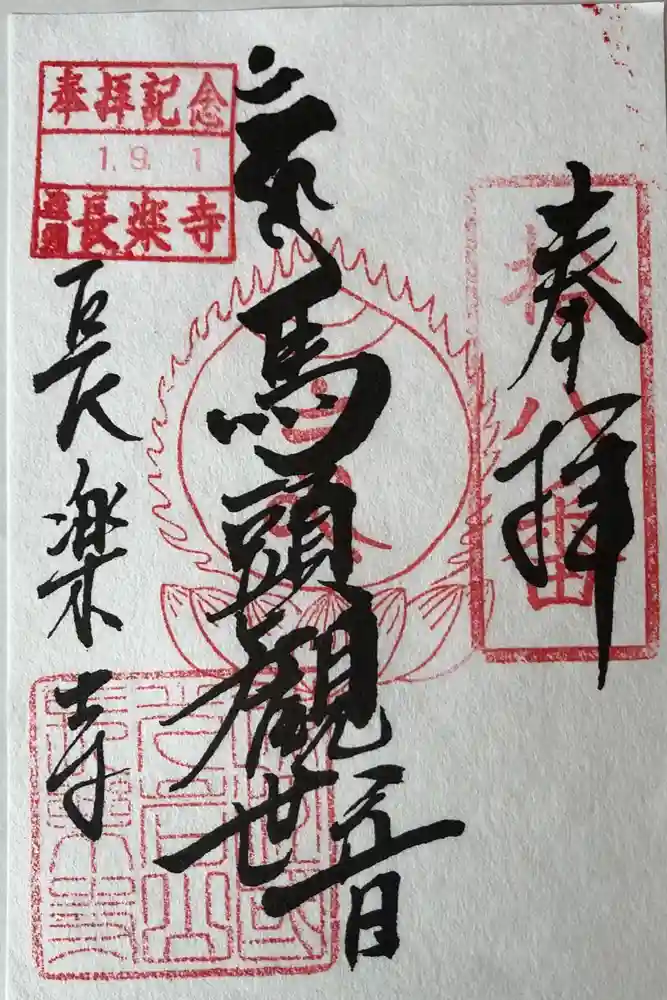 奉拝
拾八番
馬頭觀世音
長楽寺
奉拝記念
1.9.1
長楽寺